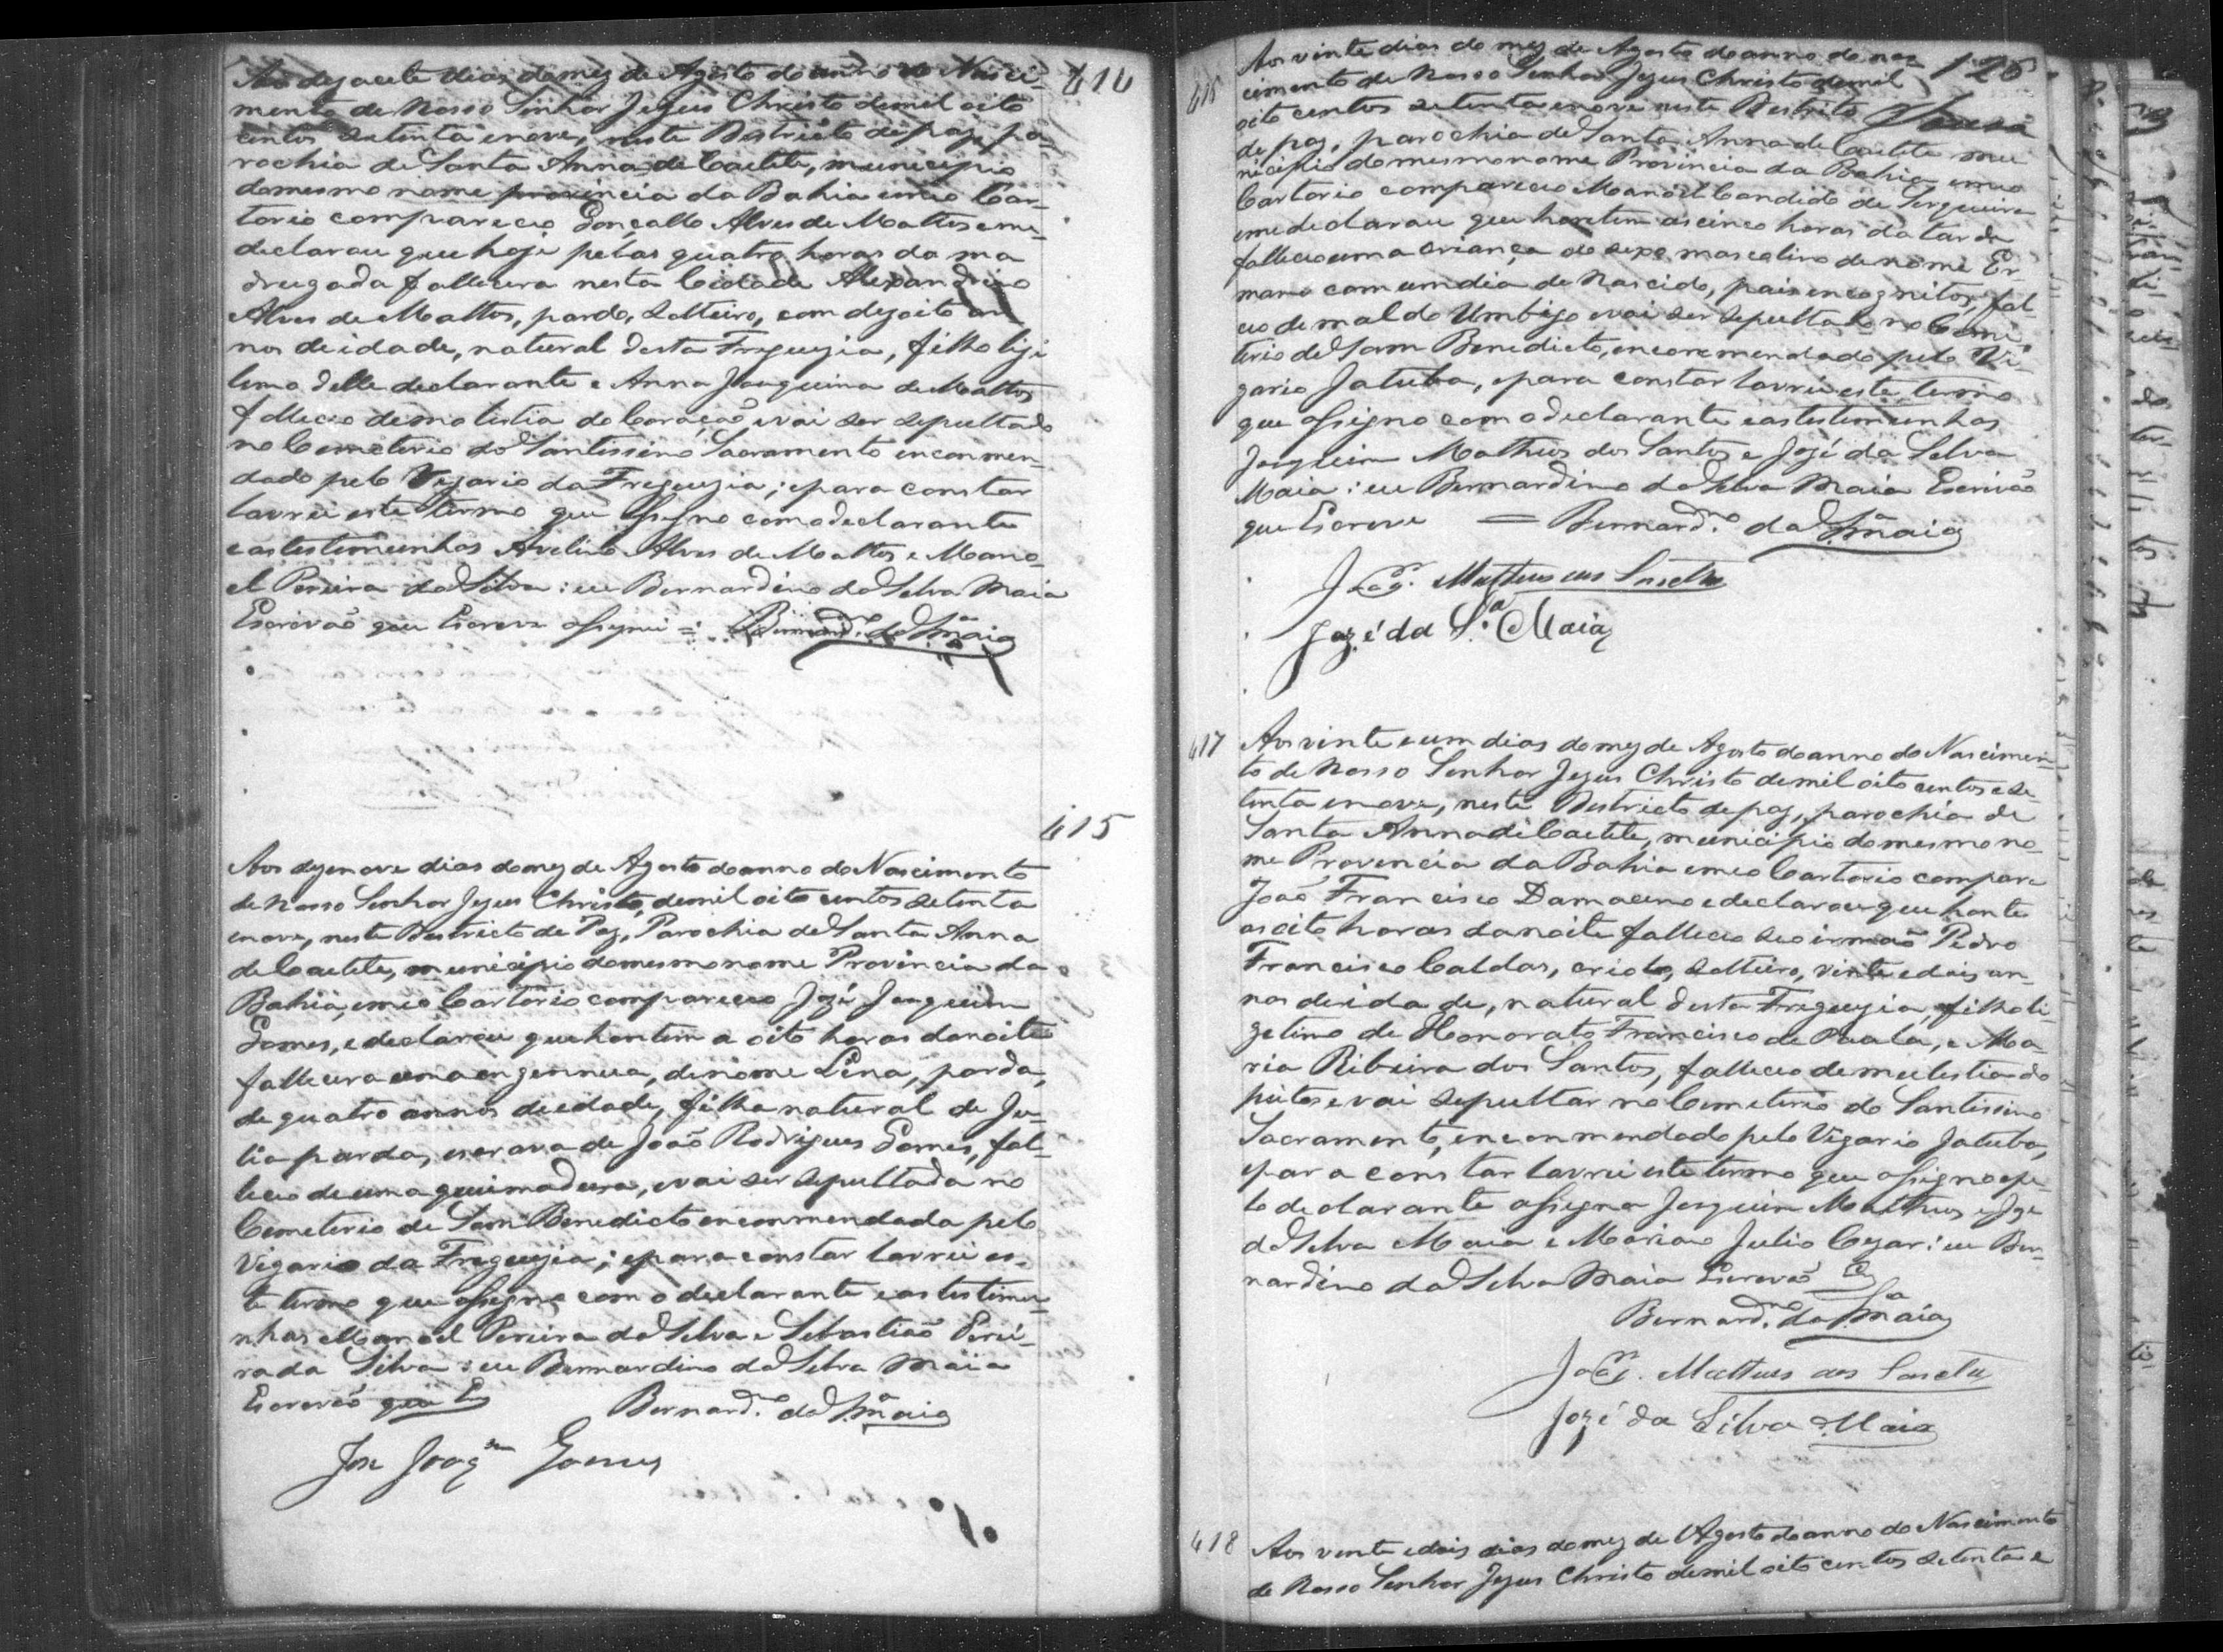 414
Aos dezacete dias do mez de Agosto do anno do Nasci-
mento de Nosso Senhor Jezus Christo de mil oito
centos setenta e nove, neste Destricto de paz, pa-
rochia de Santa Anna de Caetite, municipio
do mesmo nome provincia da Bahia em meo Car-
torio compareceo Gonçallo Alves de Mattos e me
declarou que hoje pelas quatro horas da ma
drugada fallecera nesta Cidade Alexandrino
Alves de Mattos, pardo, solteiro, com dezoito an
nos de idade, natural desta Freguezia, filho ligi
timo delle declarante e Anna Joaquina de Mattos
falleceo de molestia do Coração e vai ser sepultado
no Cemeterio do Santissimo Sacramento enconmen-
dado pelo Vigario da Freguezia; e para constar
lavrei este termo que assigno com o declarante
e as testimunhas Avelino Alves de Mattos e Mano-
el Pereira da Silva: eu Bernardino da Silva Maia
Escrevão que Escreve assignei =: Bernard.no da S.a Maia
415
Aos dezenove dias do mez de Agosto do anno do Nascimento
de Nosso Senhor Jezus Christo, de mil oito centos setenta
e nove, neste Destricto de Paz, Parochia de Santa Anna
de Caetite, municipio do mesmo nome Provincia da
Bahia, em meo Cartorio compareceo José Joaquim
Gomes, e declarou que hontem a oito horas da noite
fallecera uma engennua, de nome Lina, parda,
de quatro annos de edade, filha natural de Ju-
lia parda, escrava de João Rodrigues Gomes, fal-
leceo de uma queimadura, e vai ser sepultada no
Cemeterio de Sam Benedicto enconmendada pelo
Vigario da Freguezia; e para constar lavrei es-
te termo que assigno com o declarante e as testimu-
nhas Manoel Pereira da Silva e Sebastião Perei-
ra da Silva: eu Bernardino da Silva Maia
Escrevão que Es Bernard.no da S.a Maia
Jose Joaq.m Gomes
126
Aos vinte dias do mez de Agosto do anno do nas
cimento de Nosso Senhor Jezus Christo de mil
oito centos setenta e nove neste Destrito
de paz, parochia de Santa Anna de Caetite mu
nicipio do mesmo nome Provincia da Bahia em meo
Cartorio compareceo Manoel Candido de Serqueira
e me declarou que hontem as cinco horas da tarde
falleceo uma criança do sexo masculino de nome Er
mano com um dia de Nascido, pais encognitos, fal-
ceo de mal do Umbigo e vai ser sepultado no Cemi
terio de Sam Benedicto, encommendado pelo Vi-
gario Jatuba, e para constar lavrei este termo
que assigno com o declarante e as testimunhas
Joaquim Matheus dos Santos e José da Selva
Maia: eu Bernardino da Selva Maia Escrivão
que Escreve = Bernard.no da S.a Maia
Joaq.m Matheus dos Santos
Jozé da S.a Maia
417
Aos vinte e um dias do mez de Agosto do anno do Nascimen-
to de Nosso Senhor Jezus Christo de mil oito centos e se-
tenta e nove, neste Destricto de paz, parochia de
Santa Anna de Caetite, municipio do mesmo no-
me Provencia da Bahia em meo Cartorio compare
João Francisco Damaceno e declarou que honte
as oito horas da noite falleceo seo irmão Pedro
Francisco Caldas, criolo, solteiro, vinte e dois an-
nos de idade, natural desta Freguezia, filho li-
getimo de Honorato Francisco de Paula, e Ma-
ria Ribeira dos Santos, falleceo de mulestia do
peitos e vai sepultar no Cemeterio do Santissimo
Sacramento, enconmendado pelo Vigario Jatuba,
e para constar lavrei este termo que assigno e pe-
lo declarante assigna Joaquim Matheus e Joze
da Selva Maia e Mariano Julio Cezar: eu Ber-
nardino da Selva Maia Escrevão
Bernard.no da S.a Maia
Joaq.m Matheus dos Santos
Jozé da Silva Maia
418
Aos vente e dois dias do mez de Agosto do anno do Nascimento
de Nosso Senhor Jezus Christo de mil oito centos setenta e